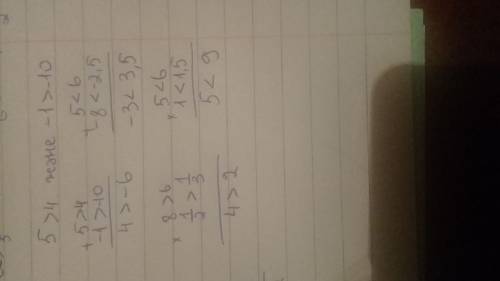 5 > 4 және -1 > -10
+ 5 > 4
-1 > -10
4 > -6
+ 5 < 6
-8 < -2,5
-3 < 3,5
× 8 > 6
1/2 > 1/3
4 > 2
× 5 < 6
1 < 1,5
5 < 9